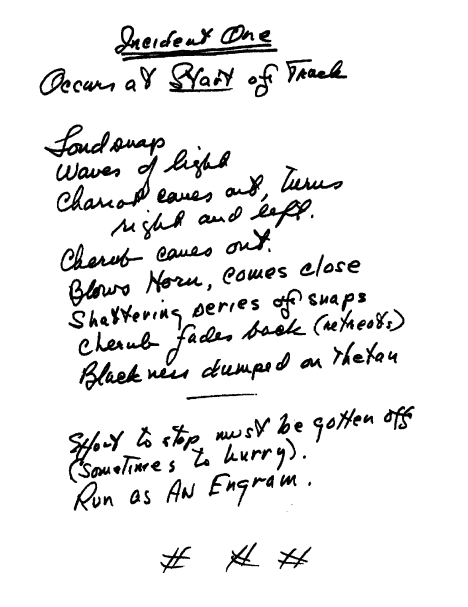 Incident One
Occurs at Start of Track
Loud snap
Waves of light
Chariot comes out, turns
right and left.
Cherub comes out.
Blows Horn, comes close
Shattering series of snaps
Cherub fades back (retreats)
Blackness dumped on Thetan
Effort to stop must be gotten off
(Sometimes to hurry).
Run as AN Engram.
# # #